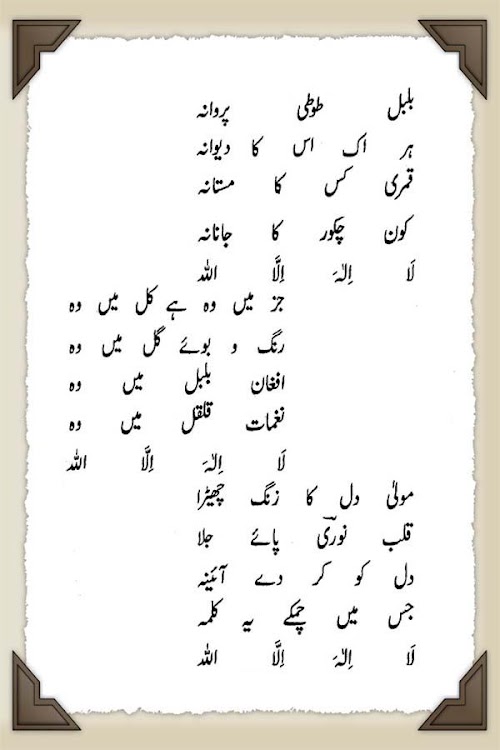 بلبل طوطی پروانہ
ہر اک اس کا دیوانہ
قمری کس کا مستانہ
کون چکور کا جانانہ
لَا اِلٰہَ اِلَّا اللہ
جز میں وہ ہے کل میں وہ
رنگ و بوئے گل میں وہ
افغان بلبل میں وہ
نغمات قلقل میں وہ
لَا اِلٰہَ اِلَّا اللہ
مولیٰ دل کا زنگ چھڑا
قلب نوریؔ پائے جلا
دل کو کر دے آئینہ
جس میں چمکے یہ کلمہ
لَا اِلٰہَ اِلَّا اللہ